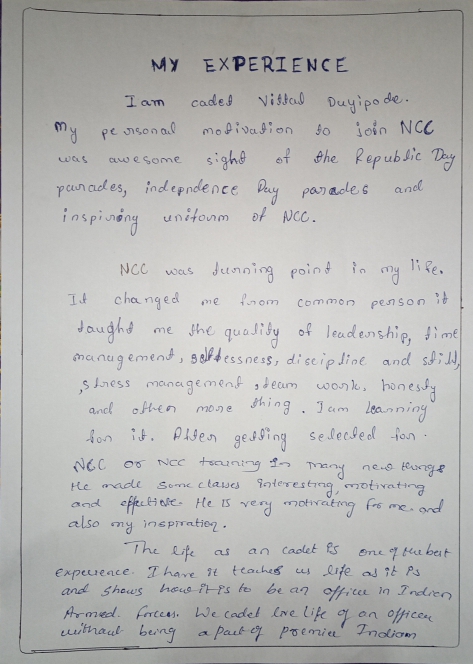 MY EXPERIENCE
I am caded Vittal Duyipode.
My personal motivation to join NCC
was awesome sight of the Republic Day
parades, indepndence Day parades and
inspiring uniform of NCC.
NCC was turning point in my life.
It changed me from common person it
taught me the quality of leadership, time
management, selflessness, discipline and still,
, stress management, team work, honesty
and other more thing. I am learning
for it. After getting selected for.
NCC or NCC training in many new things
He made some classes interesting, motivating
and effective. He is very motivating for me. and
also my inspiration.
The life as an cadet is one of the best
experience. I have it teaches us life as it is
and shows how it is to be an officer in Indian
Armed. Forces. We cadet live life of an officer
without being a part of premier Indian